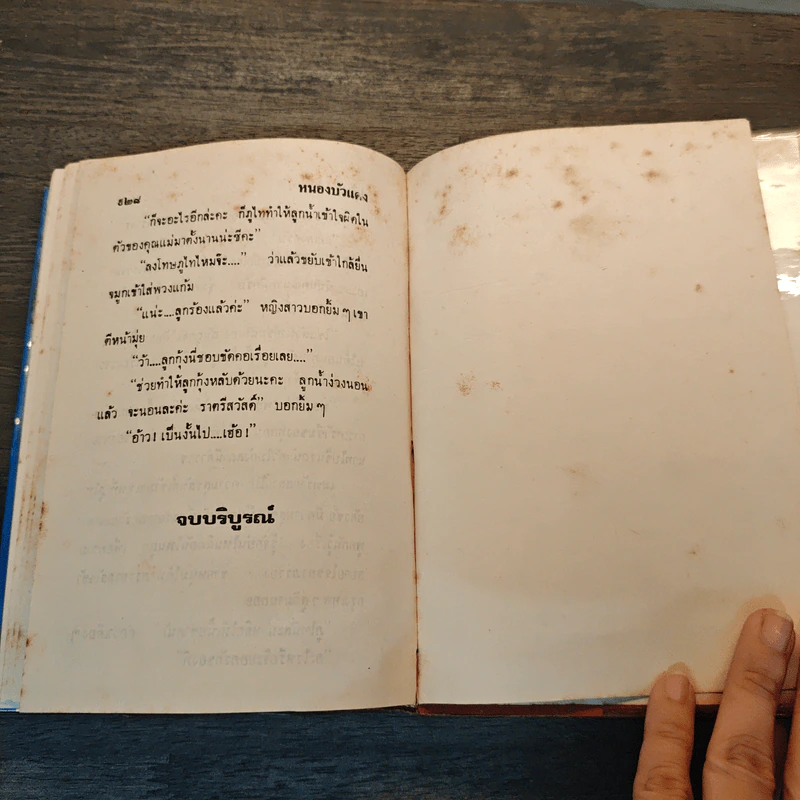 ๕๒๘ หนองบัวแดง
“ก็จะอะไรอีกล่ะคะ ก็ภูไททำให้ลูกน้ำเข้าใจผิดใน
ตัวของคุณแม่มาตั้งนานน่ะซีคะ”
“ลงโทษภูไทไหมจ๊ะ....” ว่าแล้วขยับเข้าใกล้ยื่น
จมูกเข้าใส่พวงแก้ม
“แน่ะ....ลูกร้องแล้วค่ะ” หญิงสาวบอกยิ้ม ๆ เขา
ตีหน้ามุ่ย
“ว้า....ลูกกุ้งนี่ชอบขัดคอเรื่อยเลย....”
“ช่วยทำให้ลูกกุ้งหลับด้วยนะคะ ลูกน้ำง่วงนอน
แล้ว จะนอนละค่ะ ราตรีสวัสดิ์” บอกยิ้ม ๆ
“อ้าว! เป็นงั้นไป....เฮ้อ!”
จบบริบูรณ์